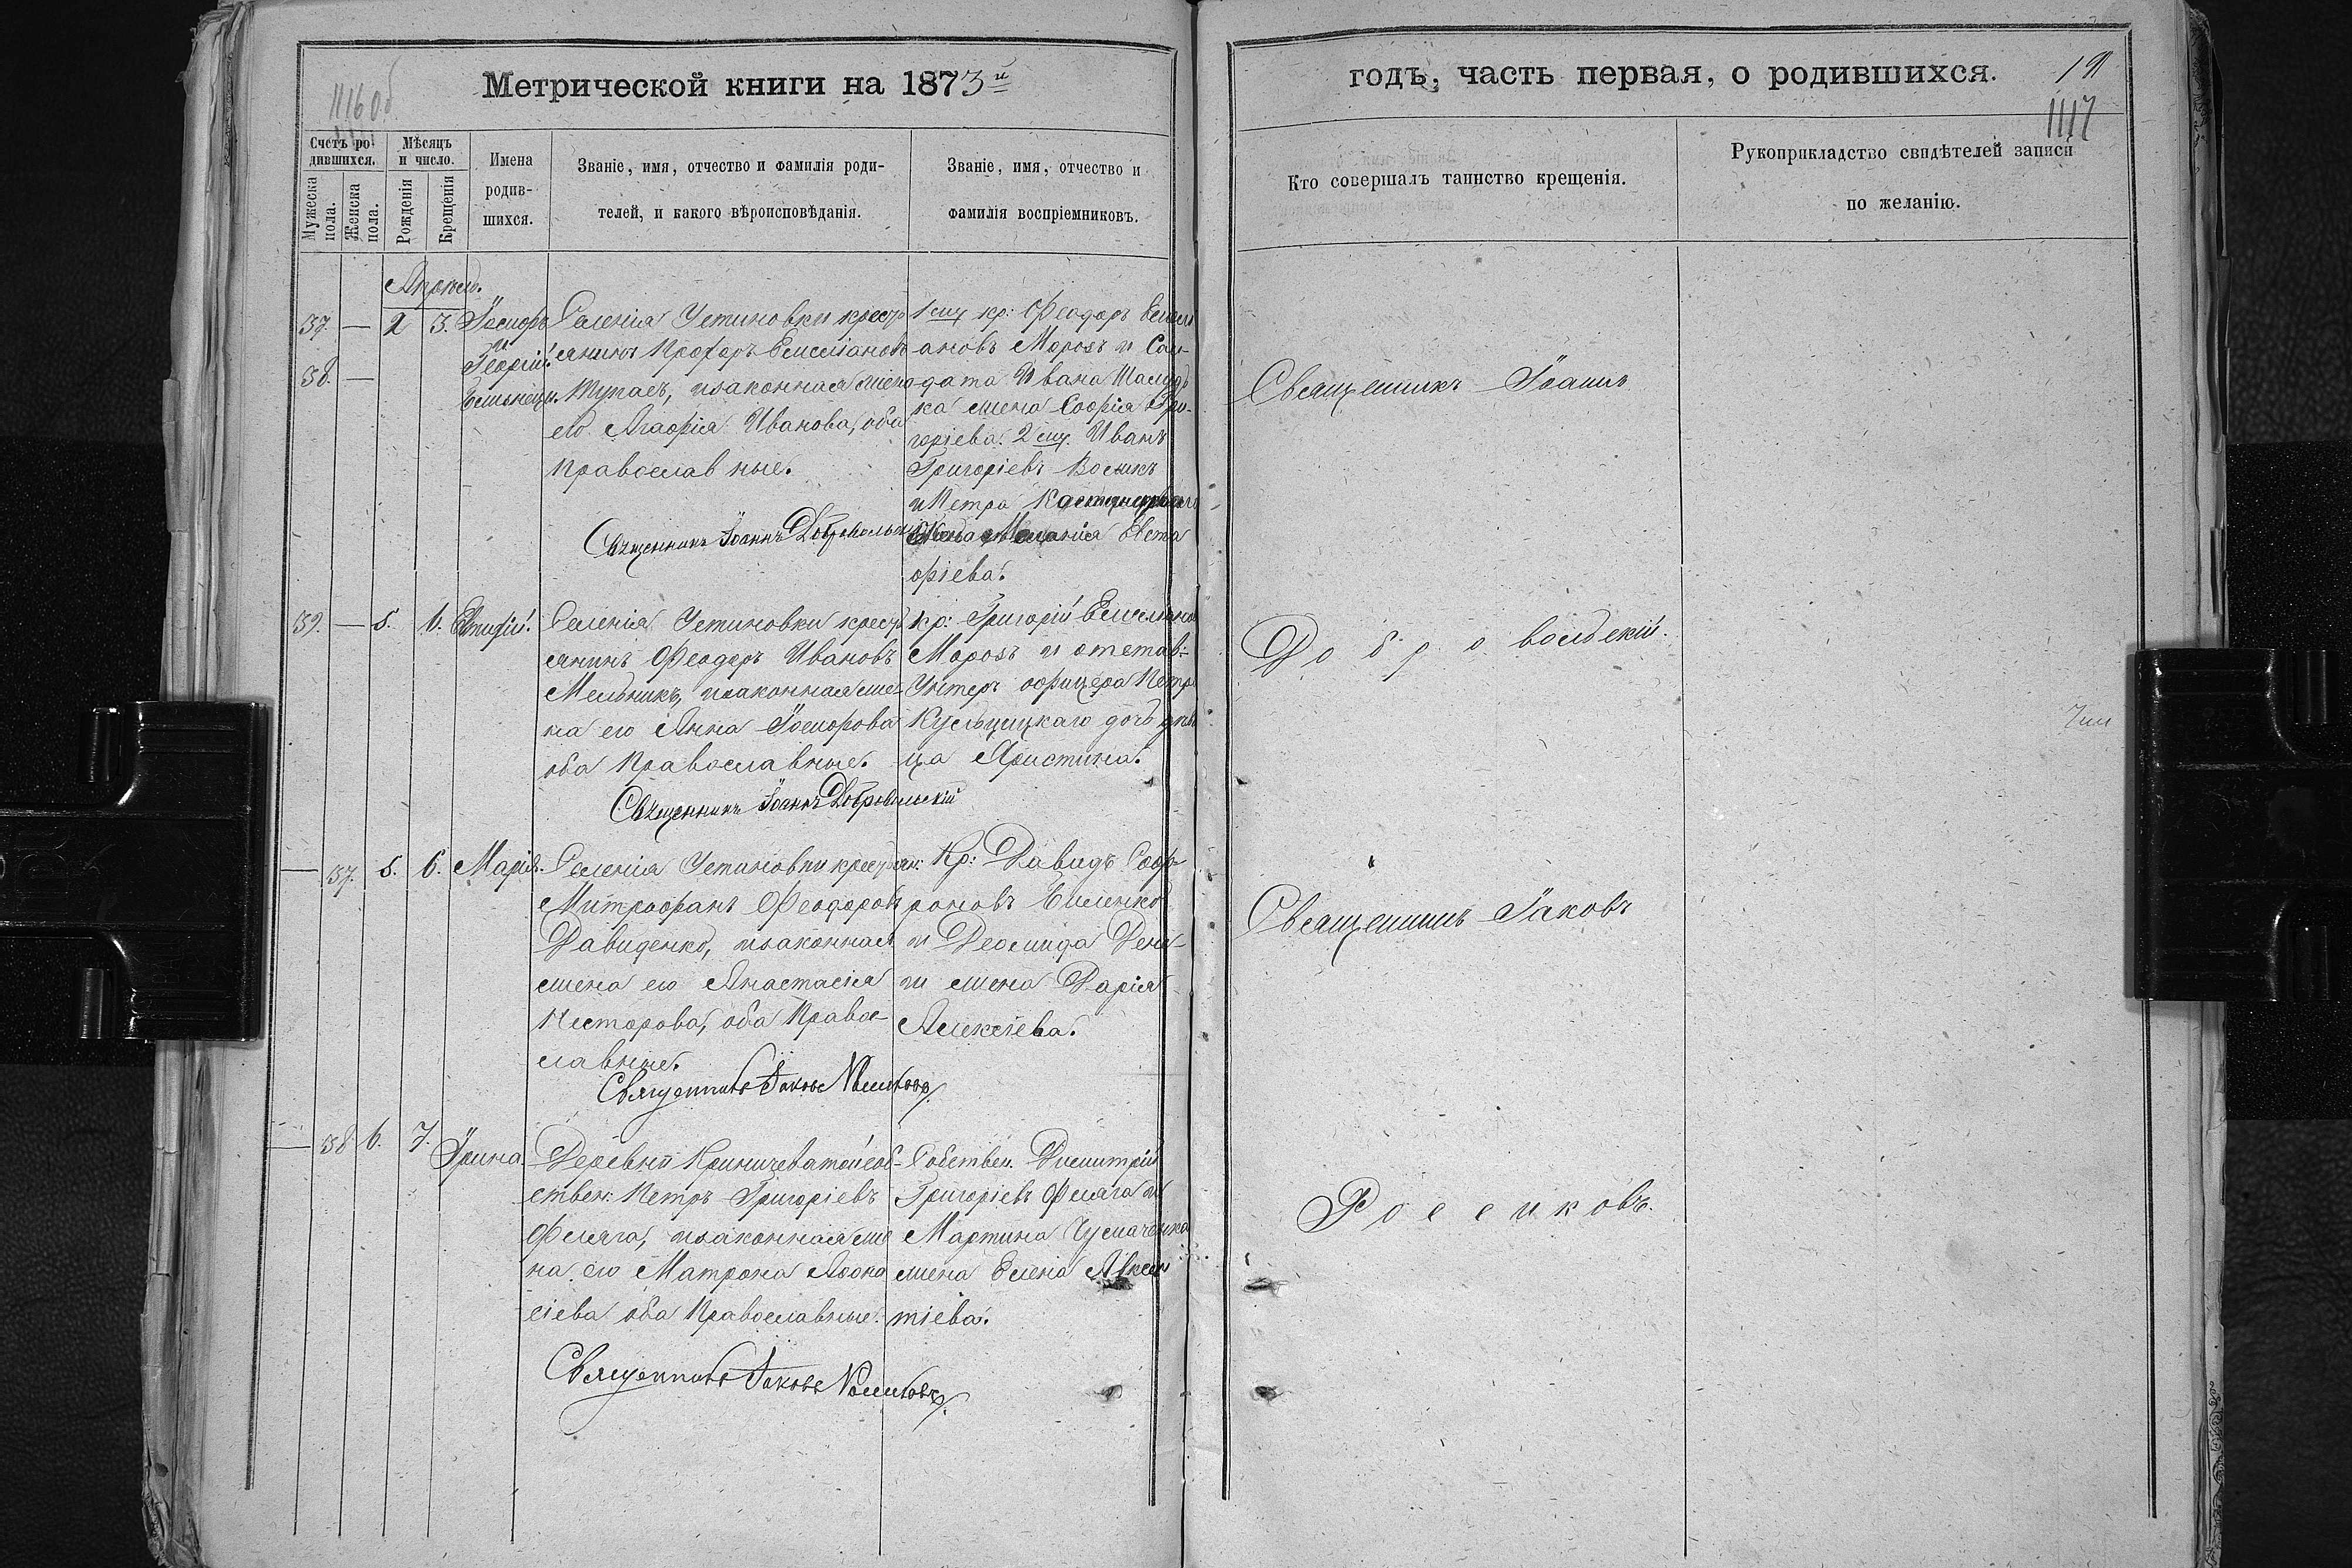 1116 об
Метрической книги на 1873й
Счетъ ро-
дившихся.
Мѣсяцъ
и число.
Мужеска
пола.
Женска
пола.
Рожденія
Крещенія
Имена
родив-
шихся.
Званіе, имя, отчество и фамилія роди-
телей, и какого вѣроисповѣданія.
Званіе, имя, отчество и
фамилія воспріемниковъ.
Апрѣль.
37. — 2 3. Іосифъ
и
Георгій.
38. —
близнецы.
Селенія Устиновки кресть
янинъ Прохоръ Емеліановъ
, и законная жена
его Агафія Иванова, оба
православные.
Священникъ Іоаннъ Добровольскій
1 му кр: Феодоръ Емели
ановъ Морозъ и Сол-
дата Ивана
ка жена Софія Гри-
горіева. 2 му. Иванъ
Григоріевъ
и Петра
жена Меланія Евста
фіева.
39. — 5. 6. Евтихій.
Селенія Устиновки кресть
янинъ Феодоръ Ивановъ
Мельникъ, и законная же-
на его Анна Іосифова
оба православные.
Священникъ Іоаннъ Добровольскій
кр: Григорій Емеліановъ
Морозъ и отстав:
Унтеръ офицера Петра
дочь дѣви
ца Христина.
— 37. 5. 6. Марія.
Селенія Устиновки крестьян:
Митрофанъ Феодоровъ
Давиденко, и законная
жена его Анастасія
Несторова, оба Право-
славные.
Священникъ Іаковъ
Кр: Давидъ Соф-
роновъ
и Деомида
жена Дарія
Алексѣева.
— 38 6. 7. Ірина.
Деревни Криничеватой соб-
ствен: Петръ Григоріевъ
Фляга, и законная же
на его Матрона Афана
сіева оба Православные.
Священникъ Іаковъ
Собствен. Димитрій
Григоріевъ Фляга и
Мартина Чумаченка
жена Елена Авксен
тіева.
годъ, часть первая, о родившихся.
1117
Кто совершалъ таинство крещенія.
Рукоприкладство свидѣтелей записи
по желанію.
Священникъ Іоаннъ
Добровольскій.
Священникъ Іаковъ
Росликовъ.